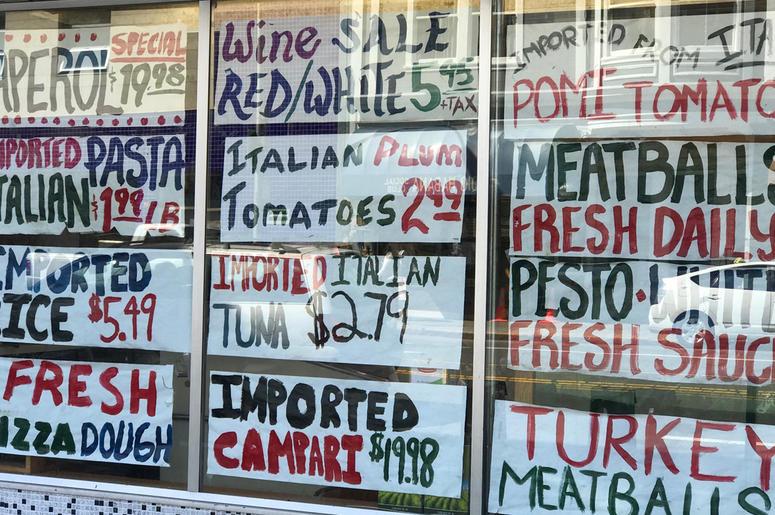 APEROL SPECIAL
$19.98
IMPORTED PASTA
ITALIAN $1.99 LB
IMPORTED
ICE $5.49
FRESH
PIZZA DOUGH
Wine SALE
RED/WHITE 5.95
+TAX
ITALIAN PLUM
TOMATOES 2.49
IMPORTED ITALIAN
TUNA $2.79
IMPORTED
CAMPARI $19.98
IMPORTED FROM ITA
POMI TOMATO
MEATBALLS
FRESH DAILY
PESTO • WHITE
FRESH SAUCE
TURKEY
MEATBALLS